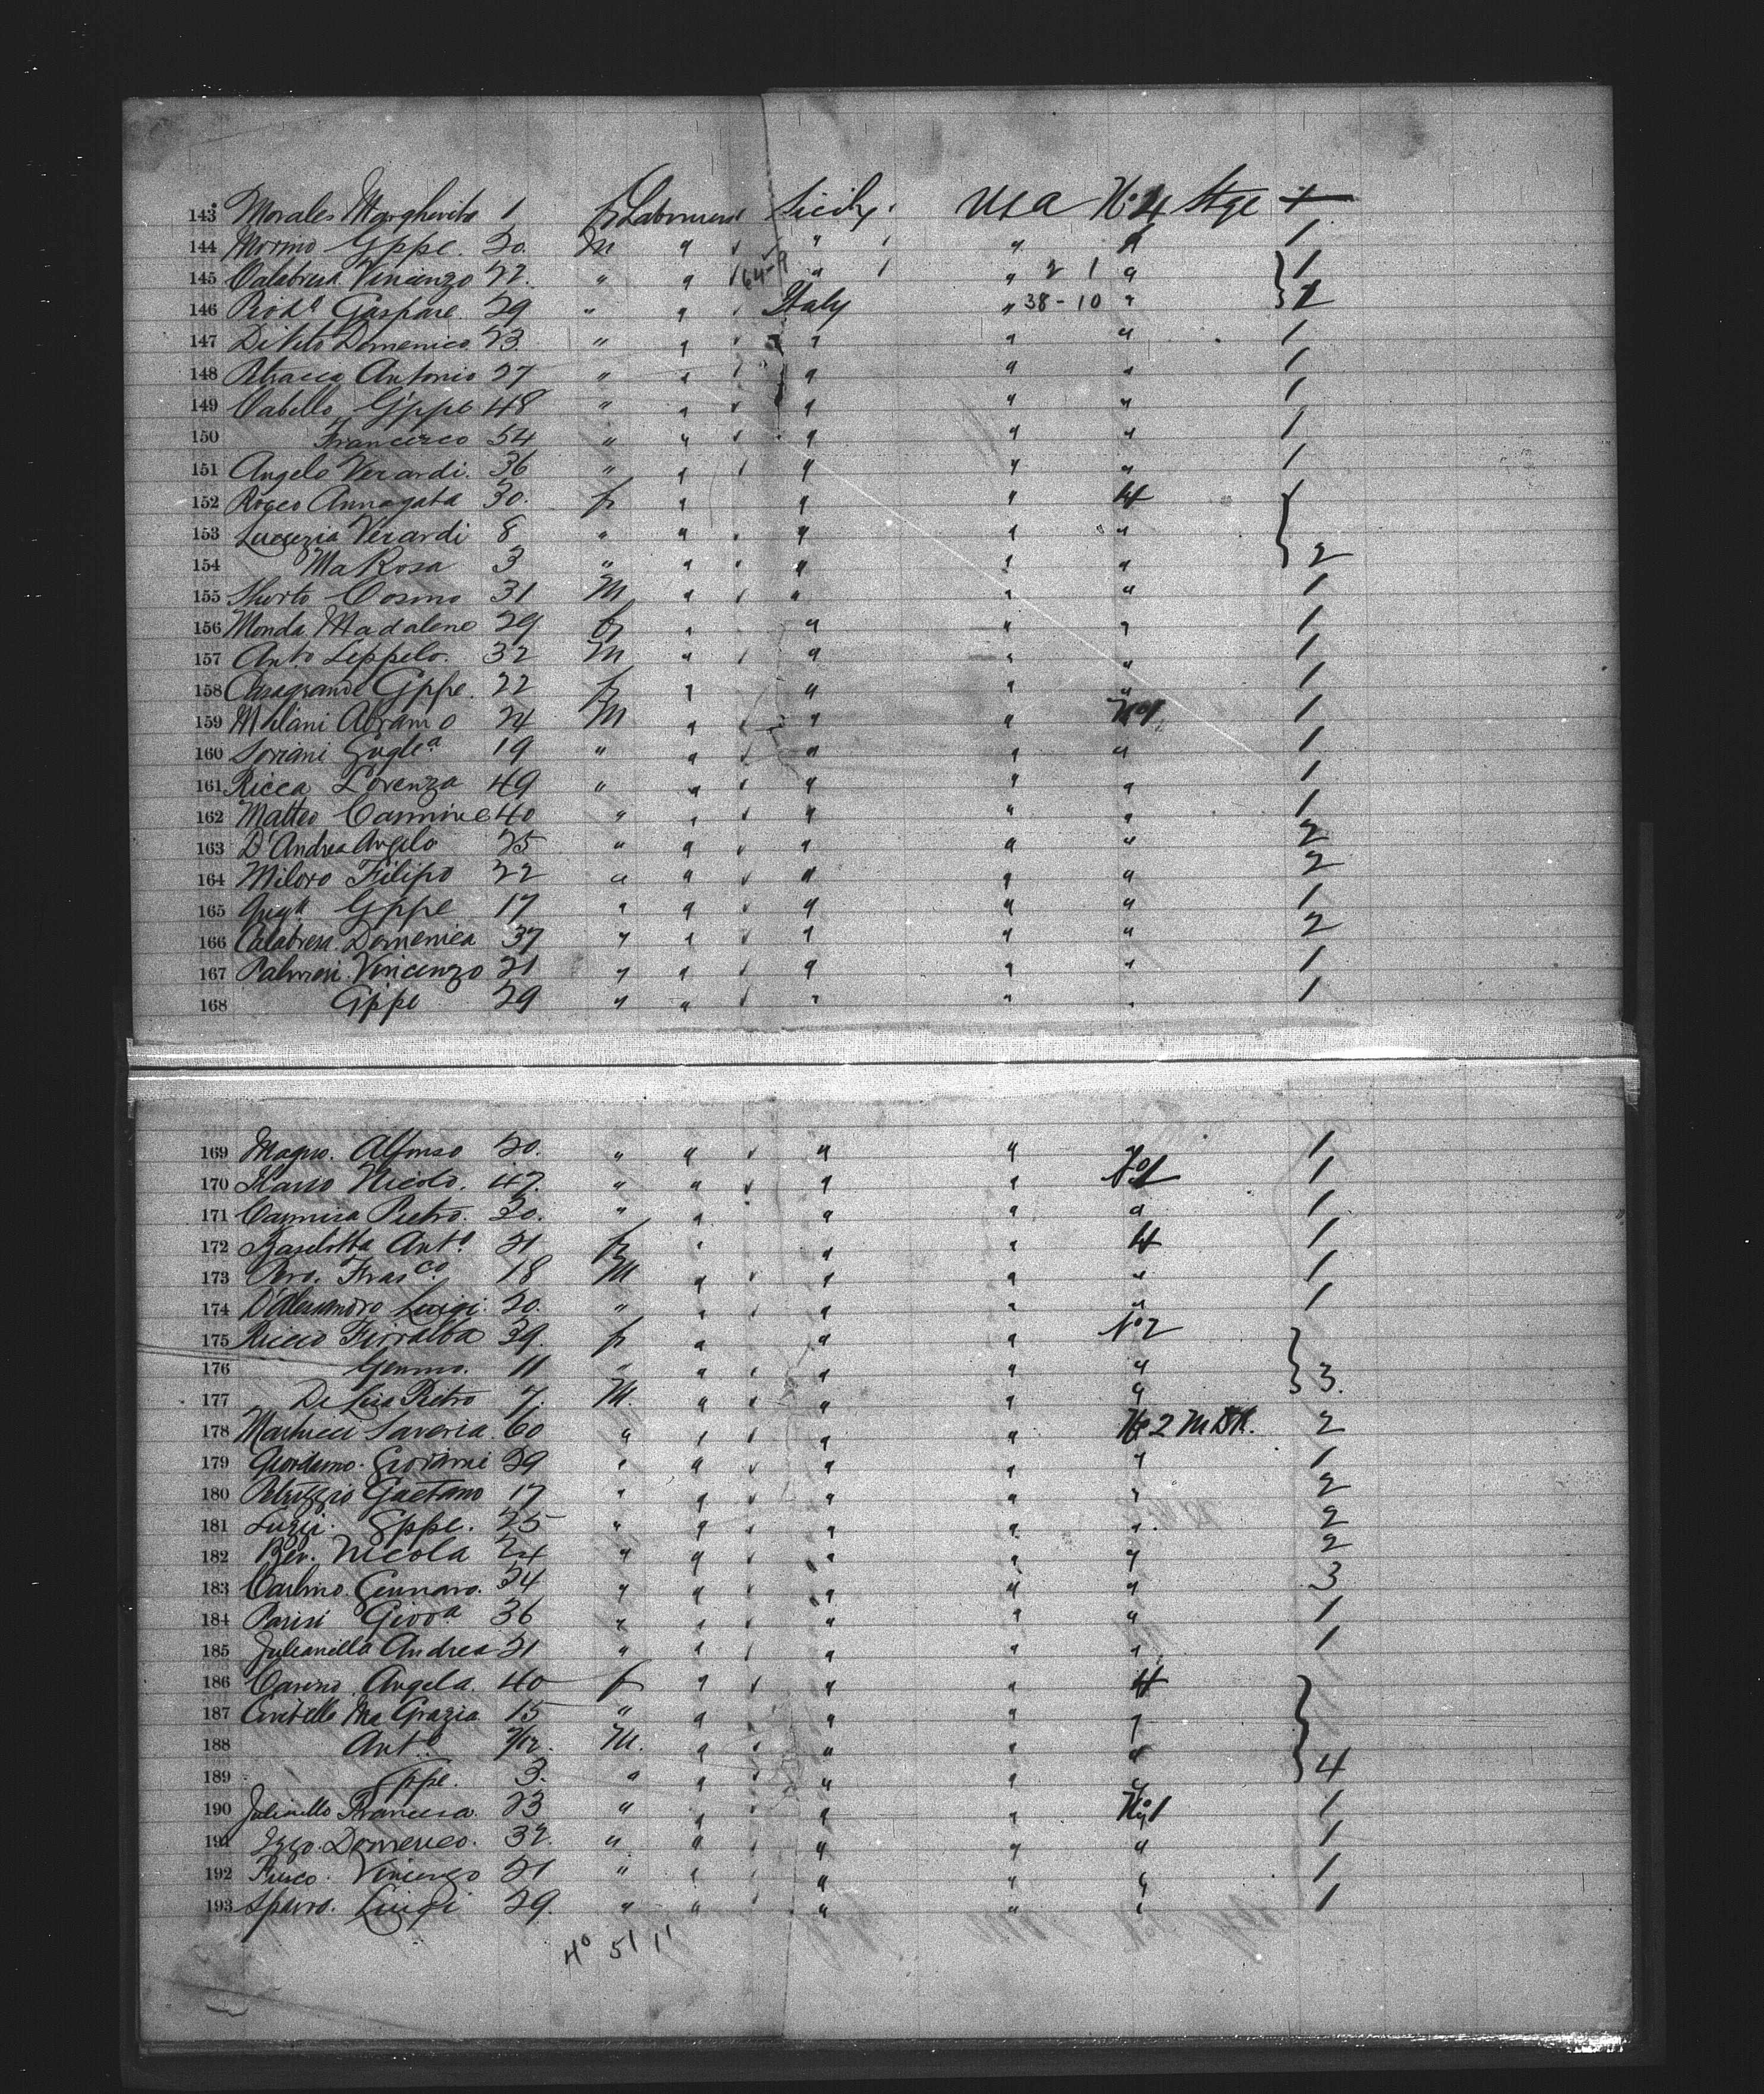 143 Morales Margherita 1 f Labourers Sicily USA No 4 Stge +
144 Morino Gppe. 20. M " " " " 1
145 Calabresa Vincenzo 22. " " 64-9 " " 2 1 " 1
146 Gaspare 29 " " Italy " 38-10 " 2
147 DiVito Domenico 23 " " " " " 1
148 Petracca Antonio 27 " " " " " 1
149 Cabello Gppe 48 " " " " " 1
150 Francesco 54 " " " " " 1
151 Angelo Verardi. 36 " " " " " 1
152 Rocco Annagata 30. f " " " 4
153 Lucrezia Verardi 8 " " " " "
154 Ma Rosa 3 " " " " " 2
155 Cosimo 31 M " " " " 1
156 Monda Madalene 29 f " " " " 1
157 Anto Leppelo. 32 M " " " " 1
158 Casagrande Gppe. 22 f " " " " 1
159 Milani Abramo 24 M " " " No 1 1
160 Soriani 19 " " " " " 1
161 Ricca Lorenza 49 " " " " " 1
162 Matteo Carmine 40 " " " " " 1
163 D'Andrea Angelo 25 " " " " " 2
164 Miloro Filipo 22 " " " " " 2
165 Gppe 17 " " " " " 1
166 Calabresa Domenica 37 " " " " " 2
167 Palmeri Vincenzo 21 " " " " " 1
168 Gppe 29 " " " " " 1
169 Magro. Alfonso 20. " " " " " 1
170 Nicolo. 47. " " " " No 1 1
171 Pietro. 20. " " " " " 1
172 Anto 21 f " " " 4 1
173 Fras co. 18 M " " " " 1
174 D'Alesandro Luigi. 20. " " " " " 1
175 Riccio Fioralba 39. f " " " No 2
176 Genmo. 11 " " " " "
177 De Lisa Pietro 7. M. " " " " 3.
178 Martucci Saveria. 60 " " " " No 2 M DK. 2
179 Giordano. Giovanni 29 " " " " " 1
180 Gaetano 17 " " " " " 2
181 Luzzi. Gppe. 25 " " " " " 2
182 Nicola 24 " " " " " 2
183 Carlino. Gennaro. 34 " " " " " 3
184 Parisi Giova 36 " " " " " 1
185 Julianella Andrea 21 " " " " " 1
186 Angela. 40 f " " " 4
187 Civitello Ma Grazia 15 " " " " "
188 Anto. 7/12. M. " " " "
189 Gppe. 3. " " " " " 4
190 Francesca. 23 " " " " No 1 1
191 Izzo. Domenico. 32. " " " " " 1
192 Fusco. Vincenzo 21 " " " " " 1
193 Luigi 29. " " " " " 1
40 51 11